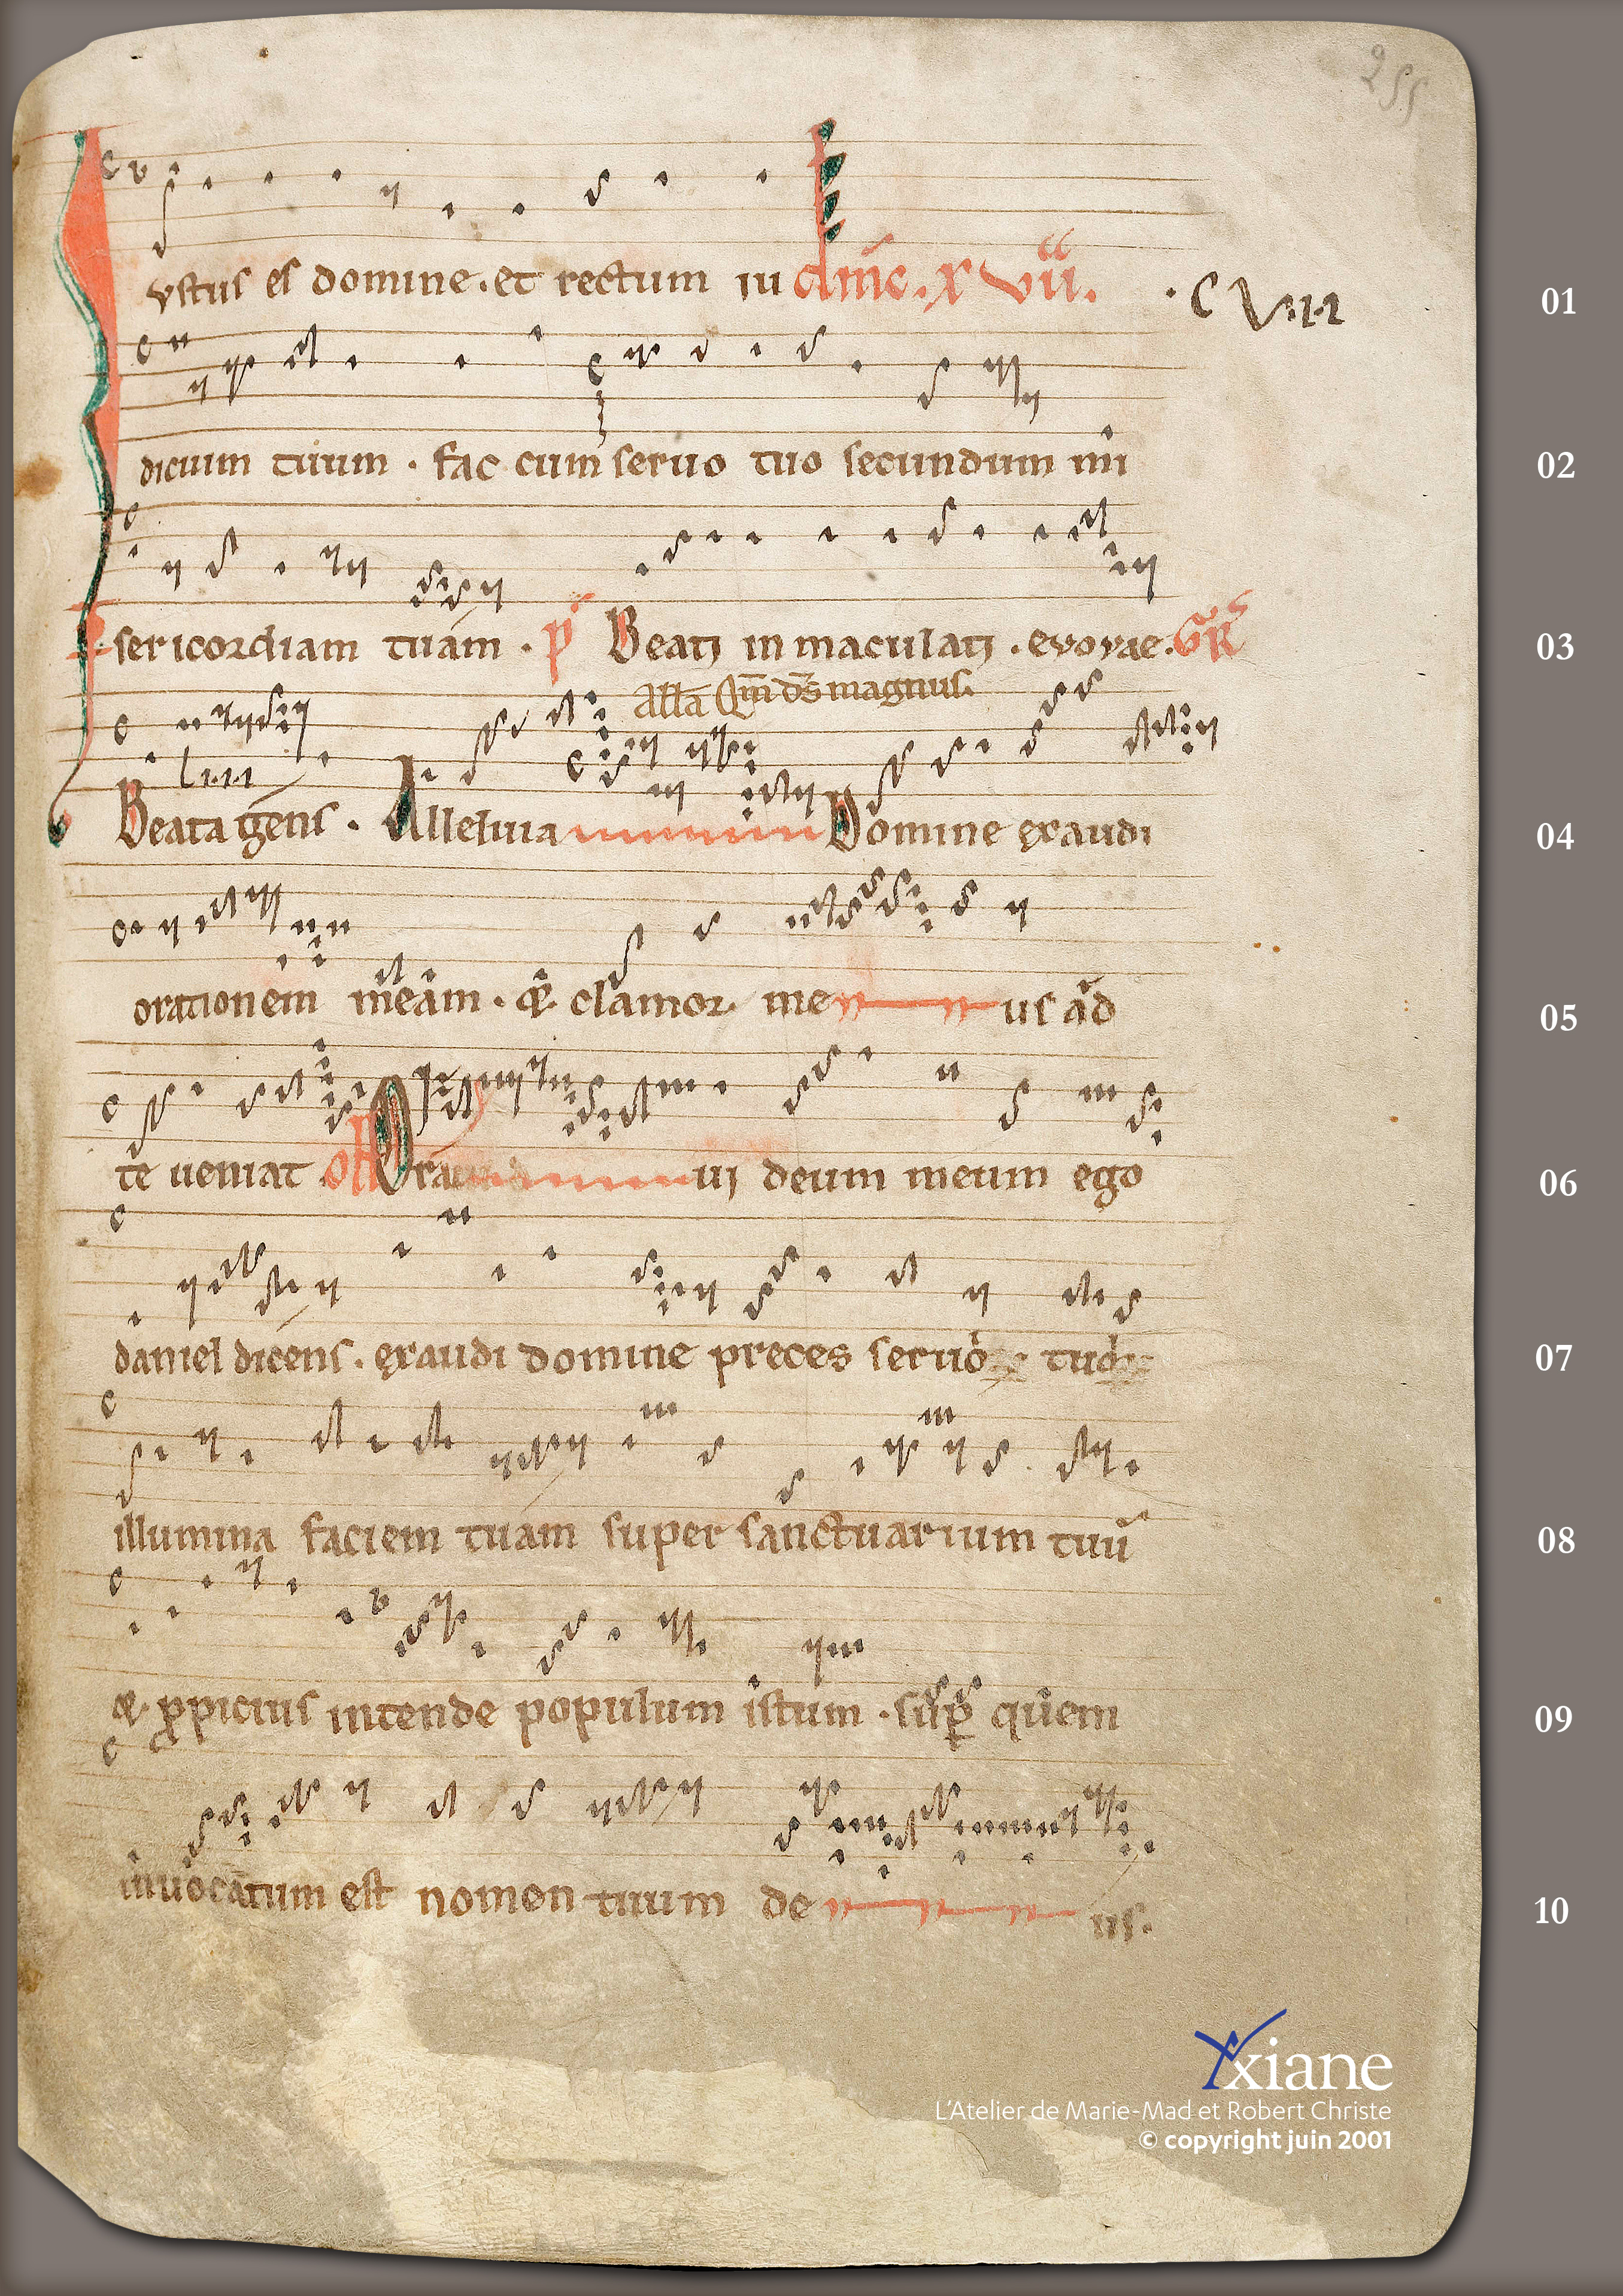 255
vstus es domine . et rectum iu dm̄c . xvii . . cviii 01
dicium tuum . fac cum seruo tuo secundum mi 02
sericordiam tuam . p̄ Beati in maculati . evovae . GR̄ 03
allā Qm̄ ds̄ magnus .
Beata gens . Alleluia Domine exaudi 04
orationem meam . & clamor me us ad 05
te ueniat . Of Ora ui deum meum ego 06
daniel dicens . exaudi domine preces seruo tuo 07
illumina faciem tuam super sanctuarium tuū 08
& ꝓpicius intende populum istum . sup̲ quem 09
inuocatum est nomen tuum de us . 10
xiane
L'Atelier de Marie-Mad et Robert Christe
© copyright juin 2001